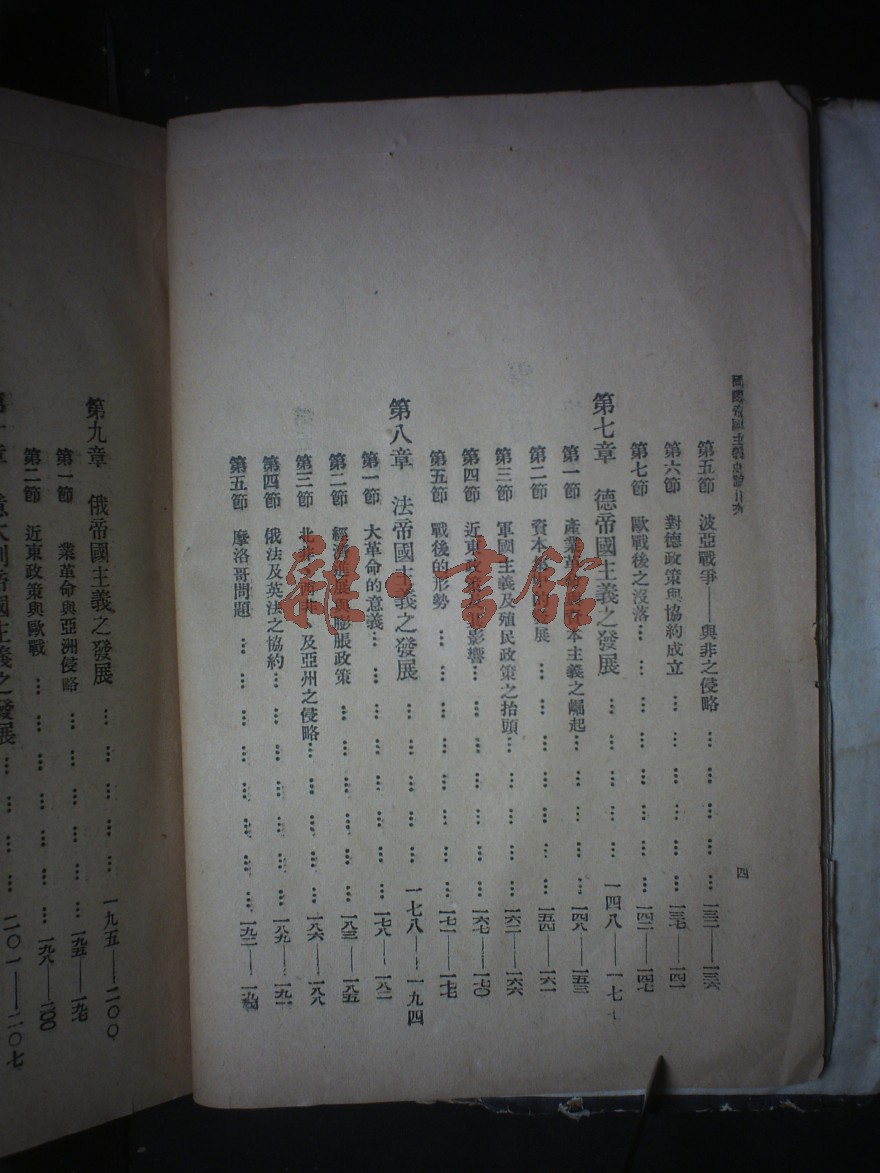 國際帝國主義史論目次
四
第五節 波亞戰爭——與非之侵略 … … … … … … 一三一——一三六
第六節 對德政策與協約成立 … … … … … … 一三七——一四一
第七節 歐戰後之沒落… … … … … … … … 一四二——一四七
第七章 德帝國主義之發展 … … … … … … 一四八——一七七
第一節 產業革命 資本主義之崛起… … … … … … 一四八——一五三
第二節 資本 的發展 … … … … … … … 一五四——一六一
第三節 軍國主義及殖民政策之抬頭… … … … … 一六二——一六六
第四節 近東政策及其影響… … … … … … … 一六七——一七〇
第五節 戰後的形勢 … … … … … … … … 一七一——一七七
第八章 法帝國主義之發展 … … … … … 一七八——一九四
第一節 大革命的意義… … … … … … … … 一七八——一八二
第二節 經濟 展與膨脹政策 … … … … … … 一八三——一八五
第三節 北非 西非 及亞州之侵略… … … … … 一八六——一八八
第四節 俄法及英法之協約… … … … … … … 一八九——一九一
第五節 摩洛哥問題 … … … … … … … … 一九二——一九四
第九章 俄帝國主義之發展 … … … … … 一九五——二〇〇
第一節 業革命與亞洲侵略 … … … … … … 一九五——一九七
第二節 近東政策與歐戰 … … … … … … … 一九八——二〇〇
第十章 意大利帝國主義之發展 … … … … … 二〇一——二〇七
雜·書館